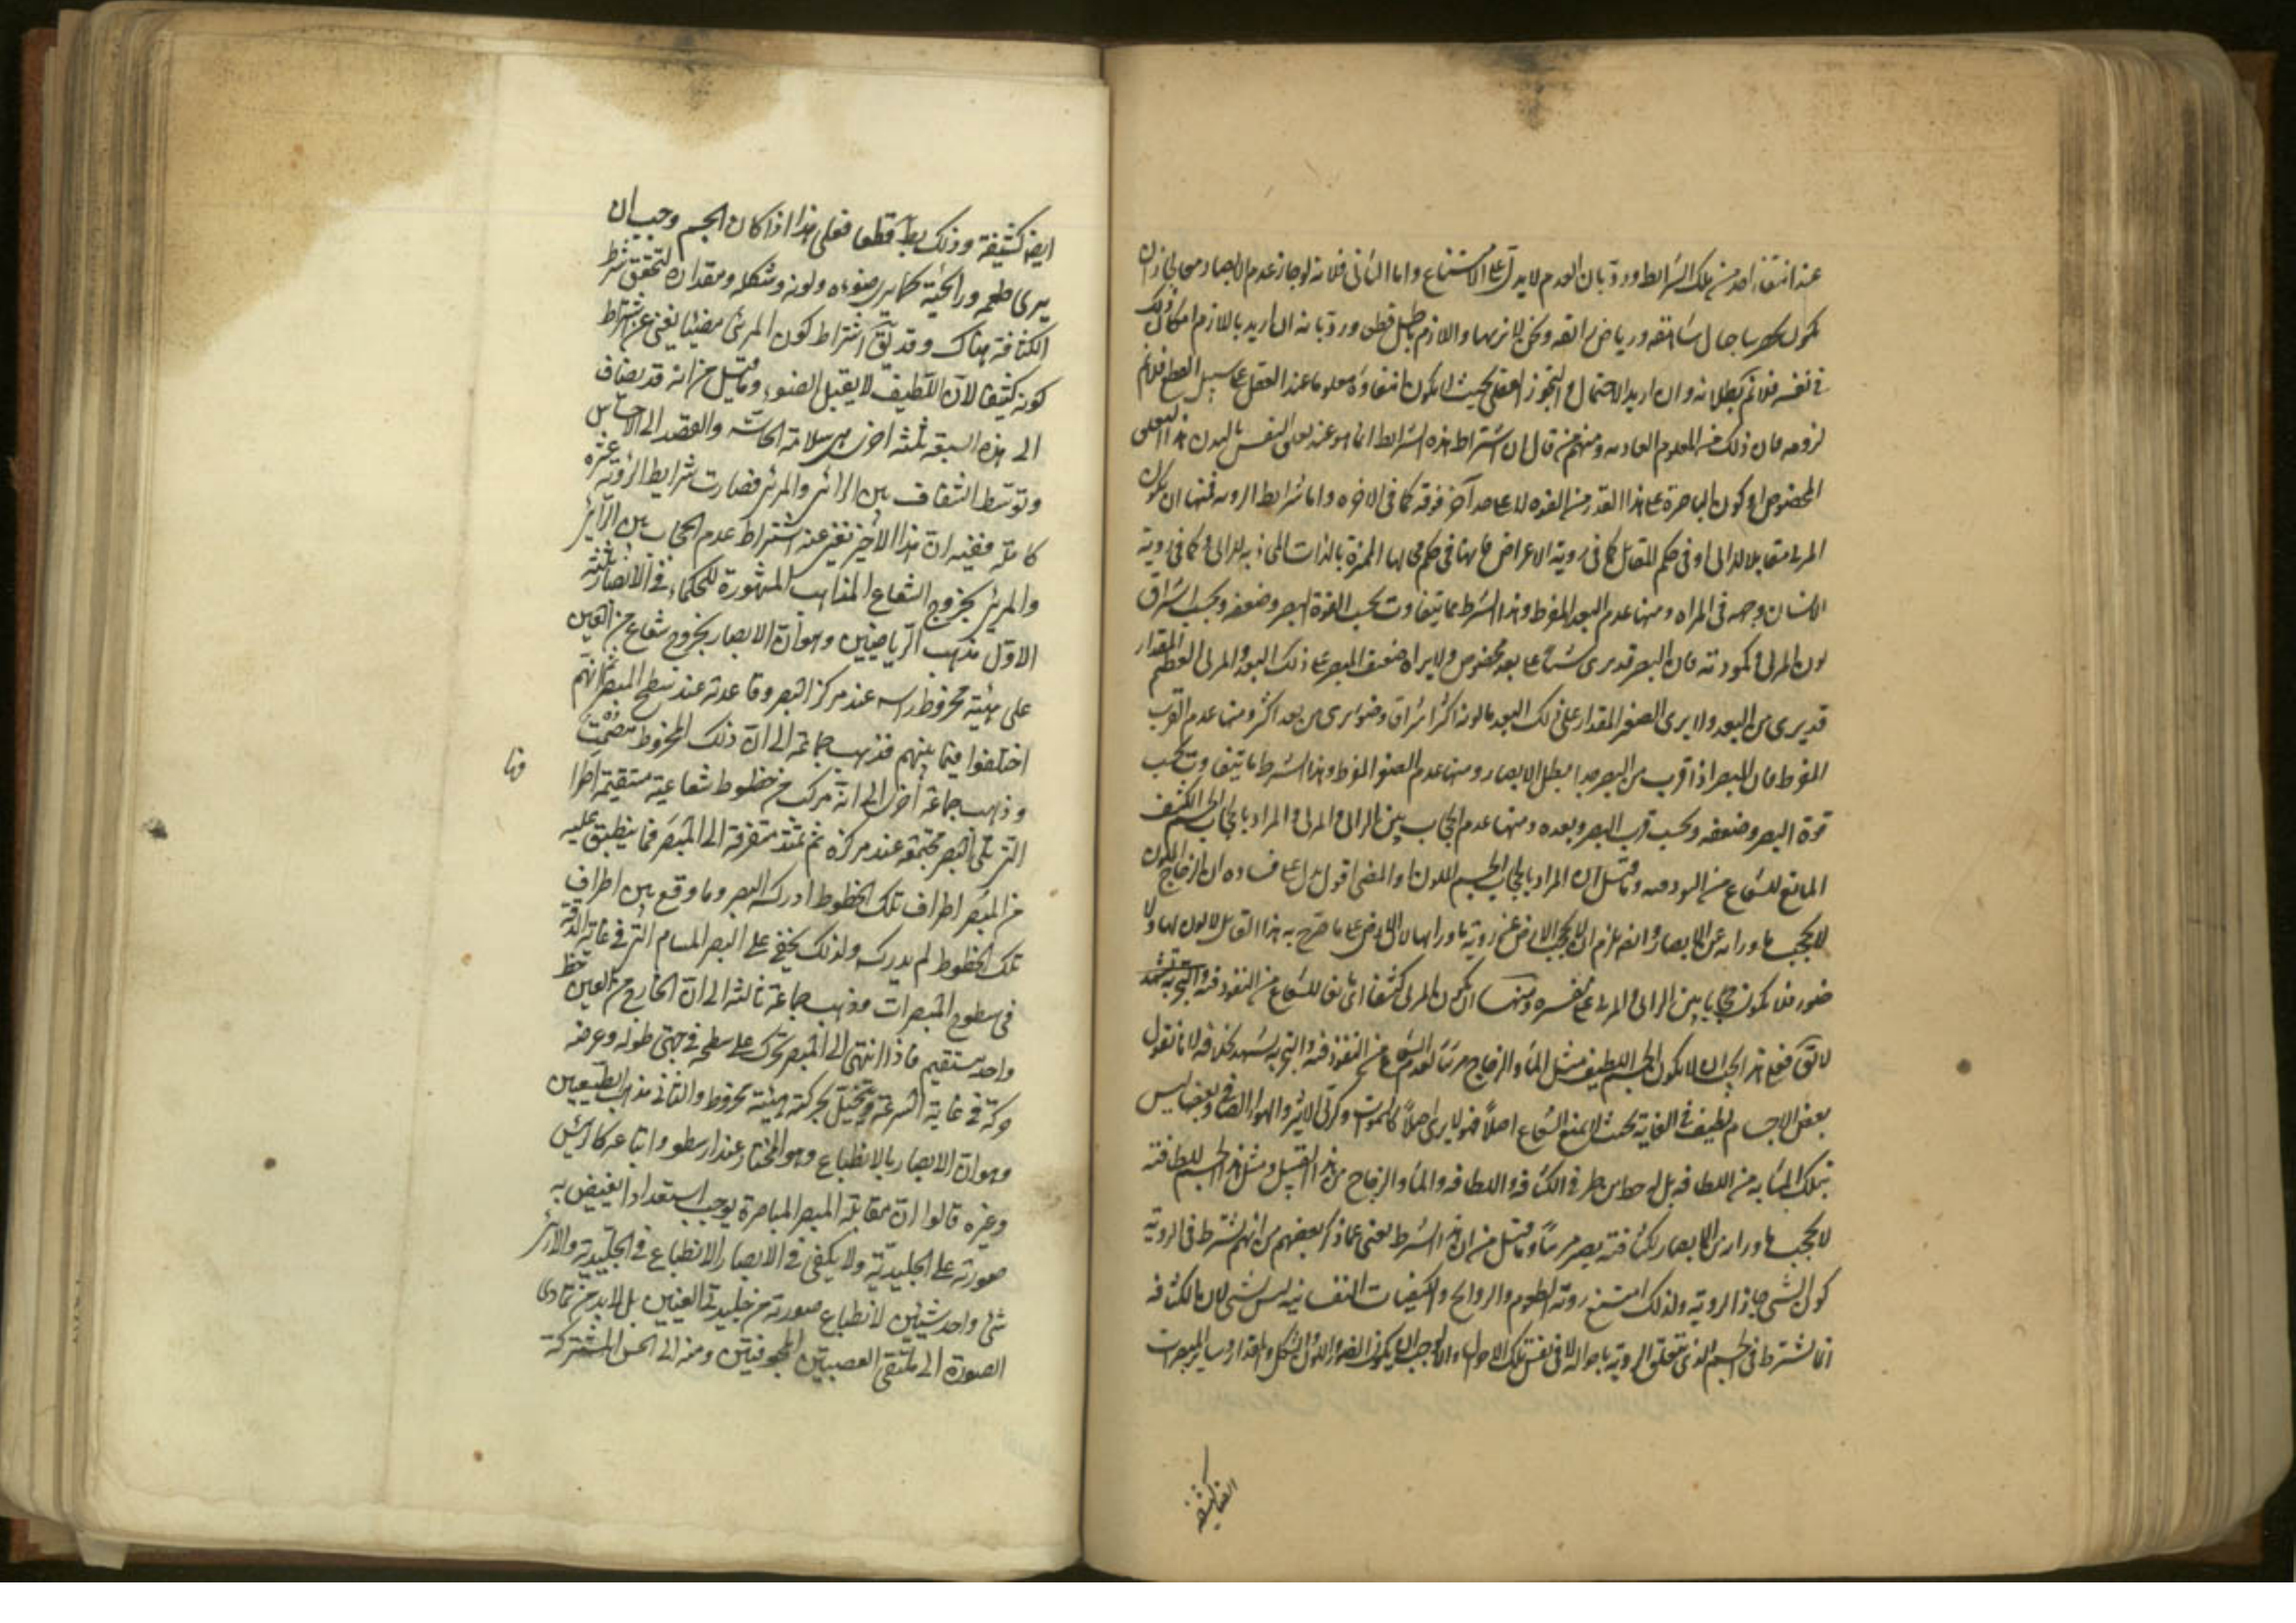 عند انتفاء احد من تلك الشرايط ورد بان العدم لا يدل على الامتناع واما الثاني فلانه لوجاز عدم الابصار معها لجاز ان
يكون بحضرتنا جبال شاهقه ورياض رائقه ونحن لا نريها واللازم باطل قطعا ورد بانه ان اريد باللازم امكان ذلك
في نفسه فلا نم بطلانه وان اريد الاحتمال والتجوز العقلي بحيث لا يكون انتفاؤه معلوما عند العقل على سبيل القطع فلا نم
لزومه فان ذلك من العلوم العاديه ومنهم من قال ان اشتراط هذه الشرايط انما هو عند تعلق النفس بالبدن هذا التعلق
المخصوص او كون الباصرة على هذا القدر من القوه لا على حد آخر فوقه كما في الاخره واما شرايط الرويه فمنها ان يكون
المرئى مقابلا للرائى او في حكم المقابل كما في روية الاعراض فانها في حكم محالها المتحيزة بالذات المحاذيه للرائى وكما في روية
الانسان وجهه في المراه ومنها عدم البعد المفرط وهذا الشرط مما يتفاوت بحسب القوة البصر وضعفه وبحسب اشراق
لون المرئى وكمودته فان البصر قد يرى شيئا على بعد مخصوص ولا يراه ضعيف البصر على ذلك البعد والمرئى العظيم المقدار
قد يرى من البعد ولا يرى الصغير المقدار على ذلك البعد ما لونه اكثر اشراق وضوء يرى من بعد اكثر ومنها عدم القرب
المفرط فان المبصر اذا قرب من البصر جدا بطل الابصار ومنها عدم الصغر المفرط وهذا الشرط ما يتفاوت بحسب
قوة البصر وضعفه وبحسب قرب البصر وبعده ومنها عدم الحجاب بين الرائى والمرئى والمراد بالحجاب الجسم الكثيف
المانع للشعاع من النفوذ فيه وما قيل ان المراد بالحجاب الجسم الملون او المضى اقول يدل على فساده ان الزجاج الملون
لا يحجب ما وراءه عن الابصار وايضا يلزم ان لا يحجب الارض عن روية ما وراءها لان الارض على ما صرح به هذا القائل لا لون لها ولا
ضوء فلا يكون حجابا بين الرائى والمرئى على تفسيره ومنها ان يكون المرئى كثيفا اى مانعا للشعاع من النفوذ فيه والتجربه تشهد
لا يقال فعلى هذا يجب ان لا يكون الجسم اللطيف مثل الماء والزجاج مرئيا لعدم الشعاع من النفوذ فيه والتجربه تشهد بخلافه لانا نقول
بعض الاجسام لطيف في الغاية بحيث لا يمنع الشعاع اصلا فهو لا يرى اصلا كالسموات وكرتى الاثير والهواء الصافى وبعضها ليس
بتلك المثابه من اللطافه بل له حظ من طرفى الكثافه واللطافه والماء والزجاج من هذا القبيل ومثل هذا الجسم للطافته
لا يحجب ما وراءه من الابصار لكثافته يصير مرئيا وما قيل من ان هذا الشرط يغنى عما ذكر بعضهم من انهم يشترط في الروية
كون الشئ جايز الروية ولذلك امتنع روية الطعوم والروايح والكيفيات النفسانيه ليس بشئ لان الكثافه
انما تشترط في الجسم الذى يتعلق الروية باحواله لا في نفس تلك الاحوال والا لوجب ان يكون الضوء واللون والشكل والمقدار وساير المبصرات
ايضا كثيفة
ايض كثيفة وذلك بط قطعا فعلى هذا اذا كان الجسم وجب ان
يرى طعمه ورائحته كما يرى ضوءه ولونه وشكله ومقداره لتحقق شرط
الكثافة هناك وقد يق اشتراط كون المرئى مضيئا يغنى عن اشتراط
كونه كثيفا لان اللطيف لا يقبل الضوء وما قيل من انه قد يضاف
الى هذه السبعة ثلثة اخرى هى سلامة الحاسة والقصد الى الاحساس
وتوسط الشفاف بين الرائى والمرئى فصارت شرايط الروية عشره
كاملة ففيه ان هذا الاخير يغنى عنه اشتراط عدم الحجاب بين الرائى
والمرئى بخروج الشعاع المذاهب المشهورة للحكماء في الابصار ثلثة
الاول مذهب الرياضيين وهو ان الابصار بخروج شعاع من العين
على هيئة مخروط راسه عند مركز البصر وقاعدته عند سطح المبصر ثم انهم
اختلفوا فيما بينهم فذهب جماعة الى ان ذلك المخروط مصمت
وذهب جماعة اخرى الى انه مركب من خطوط شعاعية مستقيمة اطرافها
التى تلى البصر مجتمعة عند مركزه ثم تمتد متفرقة الى المبصر فما ينطبق عليه
من المبصر اطراف تلك الخطوط ادركه البصر وما وقع بين اطراف
تلك الخطوط لم يدركه ولذلك يخفى على البصر المسام التى في غاية الدقة
في سطوح المبصرات وذهب جماعة ثالثة الى ان الخارج من العين خط
واحد مستقيم فاذا انتهى الى المبصر تحرك على سطحه في جهتى طوله وعرضه
حركة في غاية السرعة ويتخيل بحركته هيئة مخروط والثانى مذهب الطبيعيين
وهو ان الابصار بالانطباع وهو المختار عند ارسطو واتباعه كالرئيس
وغيره قالوا ان مقابلة المبصر للباصرة يوجب استعدادا يفيض به
صورته على الجليدية ولا يكفى في الابصار الانطباع في الجليدية والا لرئى
شئ واحد شيئين لانطباع صورته في جليديتى العينين بل لابد من تادى
الصورة الى ملتقى العصبتين المجوفتين ومنه الى الحس المشترك